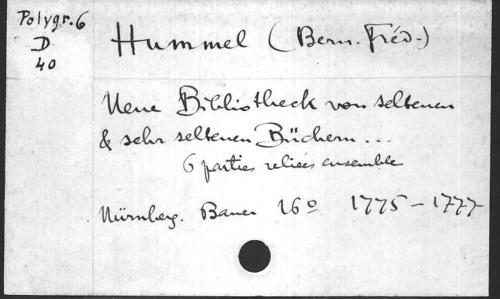 Polygr. 6
D
40
Hummel (Bern. Fréd.)
Neue Bibliotheck von seltenen
& sehr seltenen Büchern...
6 parties reliées ensemble
Nürnberg. Bauer 16º 1775-1777